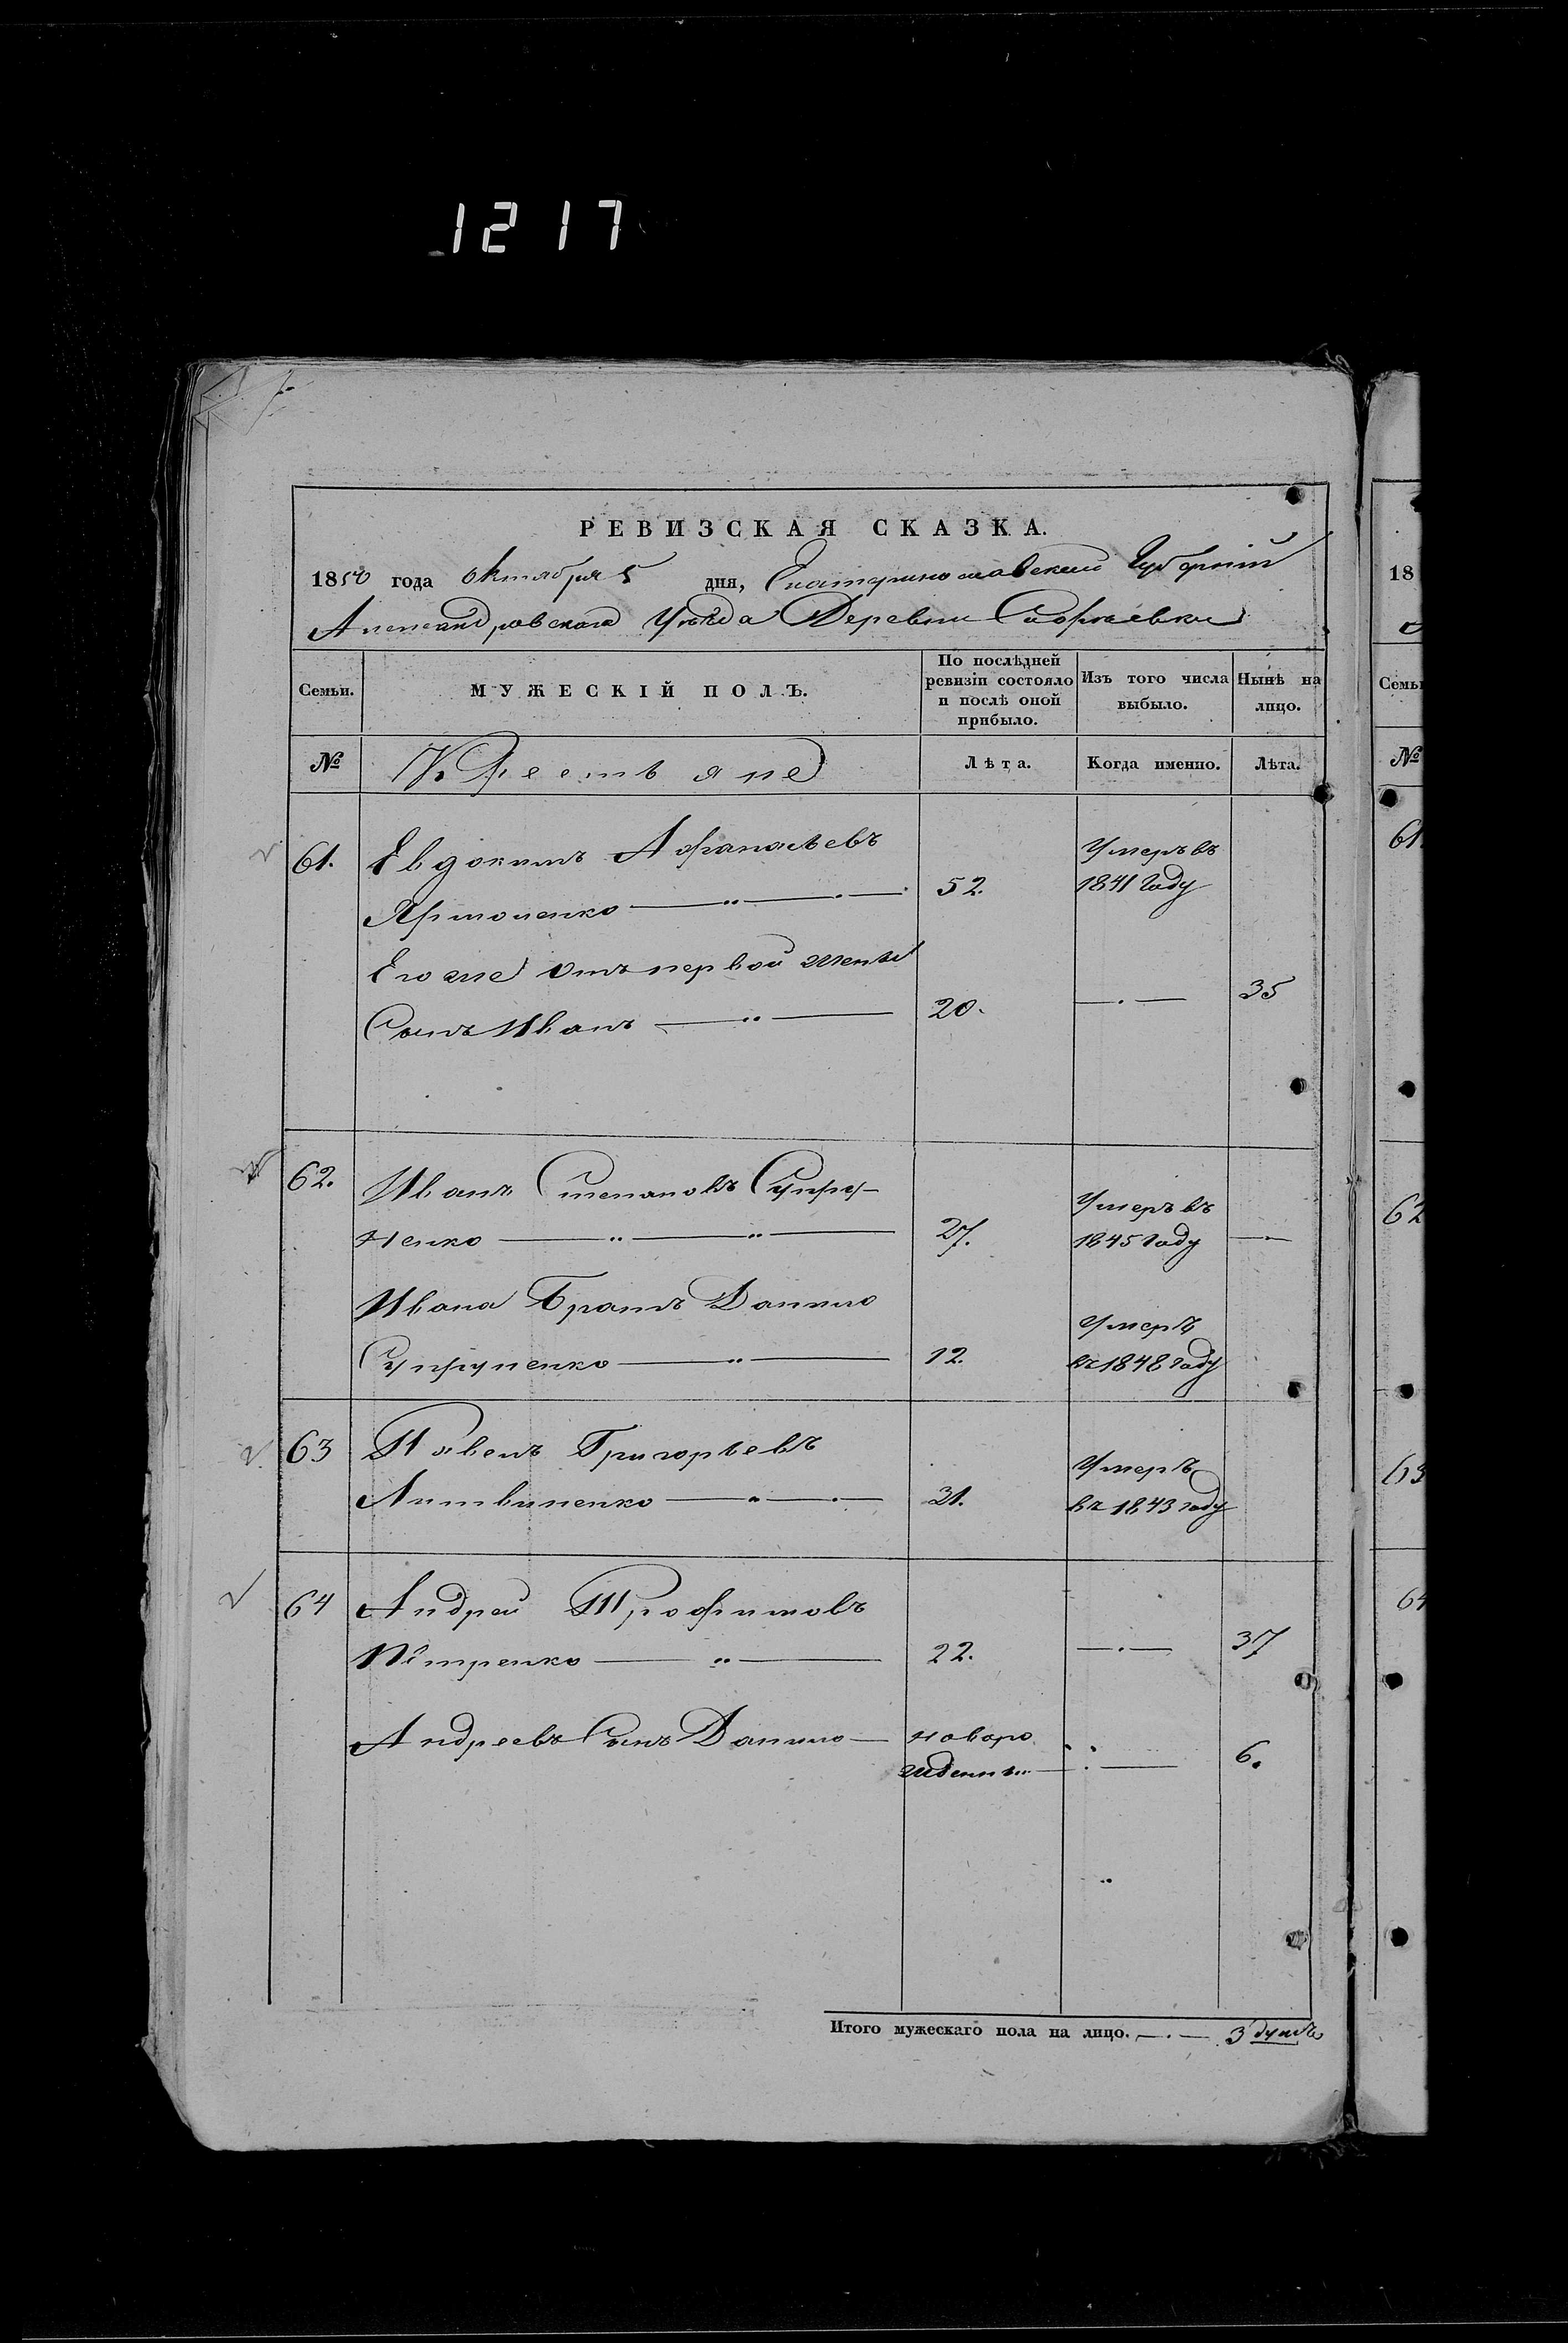 1217
РЕВИЗСКАЯ СКАЗКА.
1850 года октября 5 дня, Екатеринославской Губерніи
Александровскаго Уѣзда Деревни
Семьи.
МУЖЕСКІЙ ПОЛЪ.
По послѣдней ревизіи состояло и послѣ оной прибыло.
Изъ того числа выбыло.
Нынѣ на лицо.
№
Крестьяне
Лѣта.
Когда именно.
Лѣта.
61. Евдокимъ Афанасьевъ Умеръ въ
Ярмоленко 52. 1841 Году
Его же отъ первой жены
Сынъ Иванъ 20. 35
62. Иванъ Степановъ Супру- Умеръ въ
ненко 27. 1845 Году
Ивана Братъ Данило Умеръ
Супруненко 12. въ 1848 Году
63 Павелъ Григорьевъ Умеръ
Литвиненко 31. въ 1843 году
64 Андрей Трофимовъ
Петренко 22. 37
Андреевъ Сынъ Данило новоро
6.
Итого мужескаго пола на лицо. 3 душъ
18
Семьи
№
61.
62
63
64